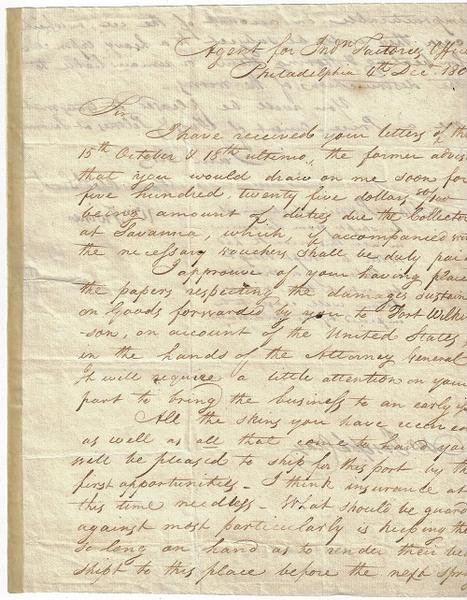 Agent for Indn Factories Office
Philadelphia 4th Dec. 180
Sir
I have received your letters of the
15th October & 18th ultimo, the former advis
that you would draw on me soon for
five hundred, twenty five dollars
being amount of duties due the Collector
at Savanna, which, if accompanied with
the necessary vouchers shall be duly paid
I approve of your having place
the papers respecting the damages sustain
on Goods forwarded by you to Fort Wilkin
-son, on account of the United States,
in the hands of the Attorney General
It will require a little attention on your
part to bring the business to an early is
All the skins you have received
as well as all that come to hand you
will be pleased to ship for this port by the
first opportunities - I think insurance at
this time needless - What should be guard
against most particularly is keeping the
so long on hand as to render their be
shipt to this place before the next spr